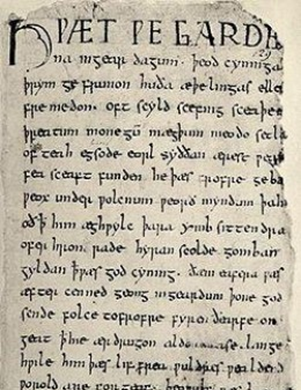 HǷÆT ǷE GARDE
na ingear dagum. þeod cyninga
þrym ge frunon huða æþelingas elle
fre medon. oft scyld scefing sceaþe
þreatum monegū mægþum meodo setl
of teah egsode eorl syððan ærest ƿe
fea sceaft funden he þæs frofre geba
ƿeox under ƿolcnum ƿeorð myndum þah
oð ꝥ him æghƿylc þara ymb sittendra
ofer hron rade hyran scolde gomban
gyldan ꝥ ƿæs god cyning. ðæm eafera ƿæs
æfter cenned geong ingeardum þone god
sende folce tofrofre fyren ðearfe on
geat ꝥ hie ær drugon aldor ase. lange
hƿile him þæs lif frea ƿuldres ƿealdend
ƿorold are for geaf.